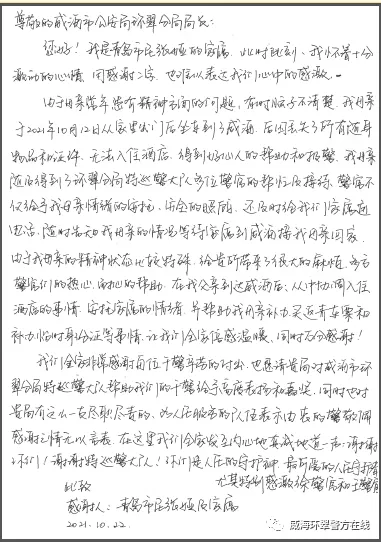 尊敬的威海市公安局环翠分局局长:
您好!我是青岛市民张娅的家属,此时此刻,我怀着十分
激动的心情,用感谢二字,也难以表达我们心中的感激。
由于母亲常年患有精神方面的问题,有时脑子不清楚,我母亲
于2021年10月12日从家里出门后坐车到了威海,后因丢失了所有随身
物品和证件,无法入住酒店,得到好心人的帮助和报警,我母亲
随后得到了环翠分局特巡警大队多位警官的帮忙及接待,警官不
仅给予我母亲情绪的安抚、安全的照顾,还及时给我们家属通
电话,随时告知我母亲的情况等待家属到威海接我母亲回家。
由于我母亲的精神状态比较特殊,给贵所带来了很大的麻烦,多亏
警官们的热心、耐心的帮助,在我父亲到达威海后,从中协调入住
酒店的事情,安抚家属的情绪,并帮助我母亲补办买返青车票和
补办临时身份证等事情,让我们全家倍感温暖,同时万分感谢!
我们全家非常感谢每位干警辛苦的付出,也恳请贵局对威海市环
翠分局特巡警大队帮助我们的干警给予高度表扬和嘉奖,同时也对
贵局有这么一支尽职尽责的、为人民服务的队伍表示由衷的赞敬佩
感谢之情无以言表,在这里我们全家发自内心地真诚地道一声:谢谢
你们!谢谢特巡警大队!你们是人民的守护神,最可爱的人民守护者
尤其特别感激徐警官和王警官
此致
感谢人:青岛市民张娅及家属
2021.10.22.
威海环翠警方在线